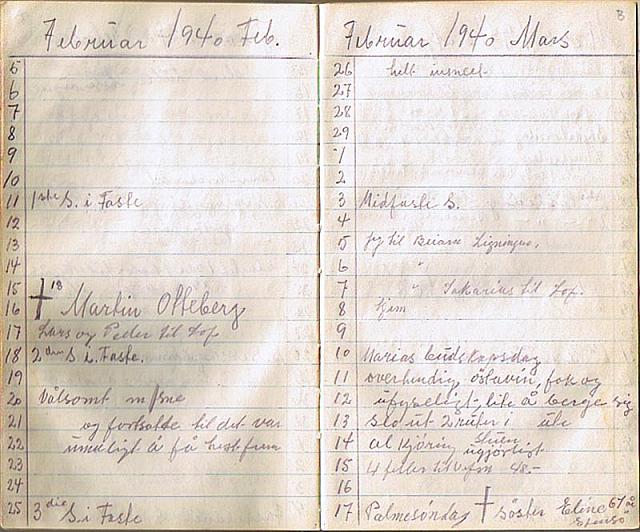 Februar 1940 Feb.
5
6
7
8
9
10
11 1ste S. i Faste
12
13
14
15 † 18
16 Martin Offeberg
17 Lars og Peder til
18 2den S. i Faste.
19
20 Voldsomt
21 og fortsatte til det var
22 umuligt å få hest frem
23
24
25 3die S. i Faste
3
Februar 1940 Mars
26 helt
27
28
29
1
2
3 Midfaste S.
4
5 Jeg til Beiarn Ligninga.
6 "
7 " Sakarias til
8 hjem
9
10 Marias budskapsdag
11 overhendig, østavin, fok og
12 ufyseligt, lite å berge sig
13 Slo ut 2 ruter i
14 al kjöring ugjørligt
15 48.-
16
17 Palmesöndag † Söster Eline 67 år